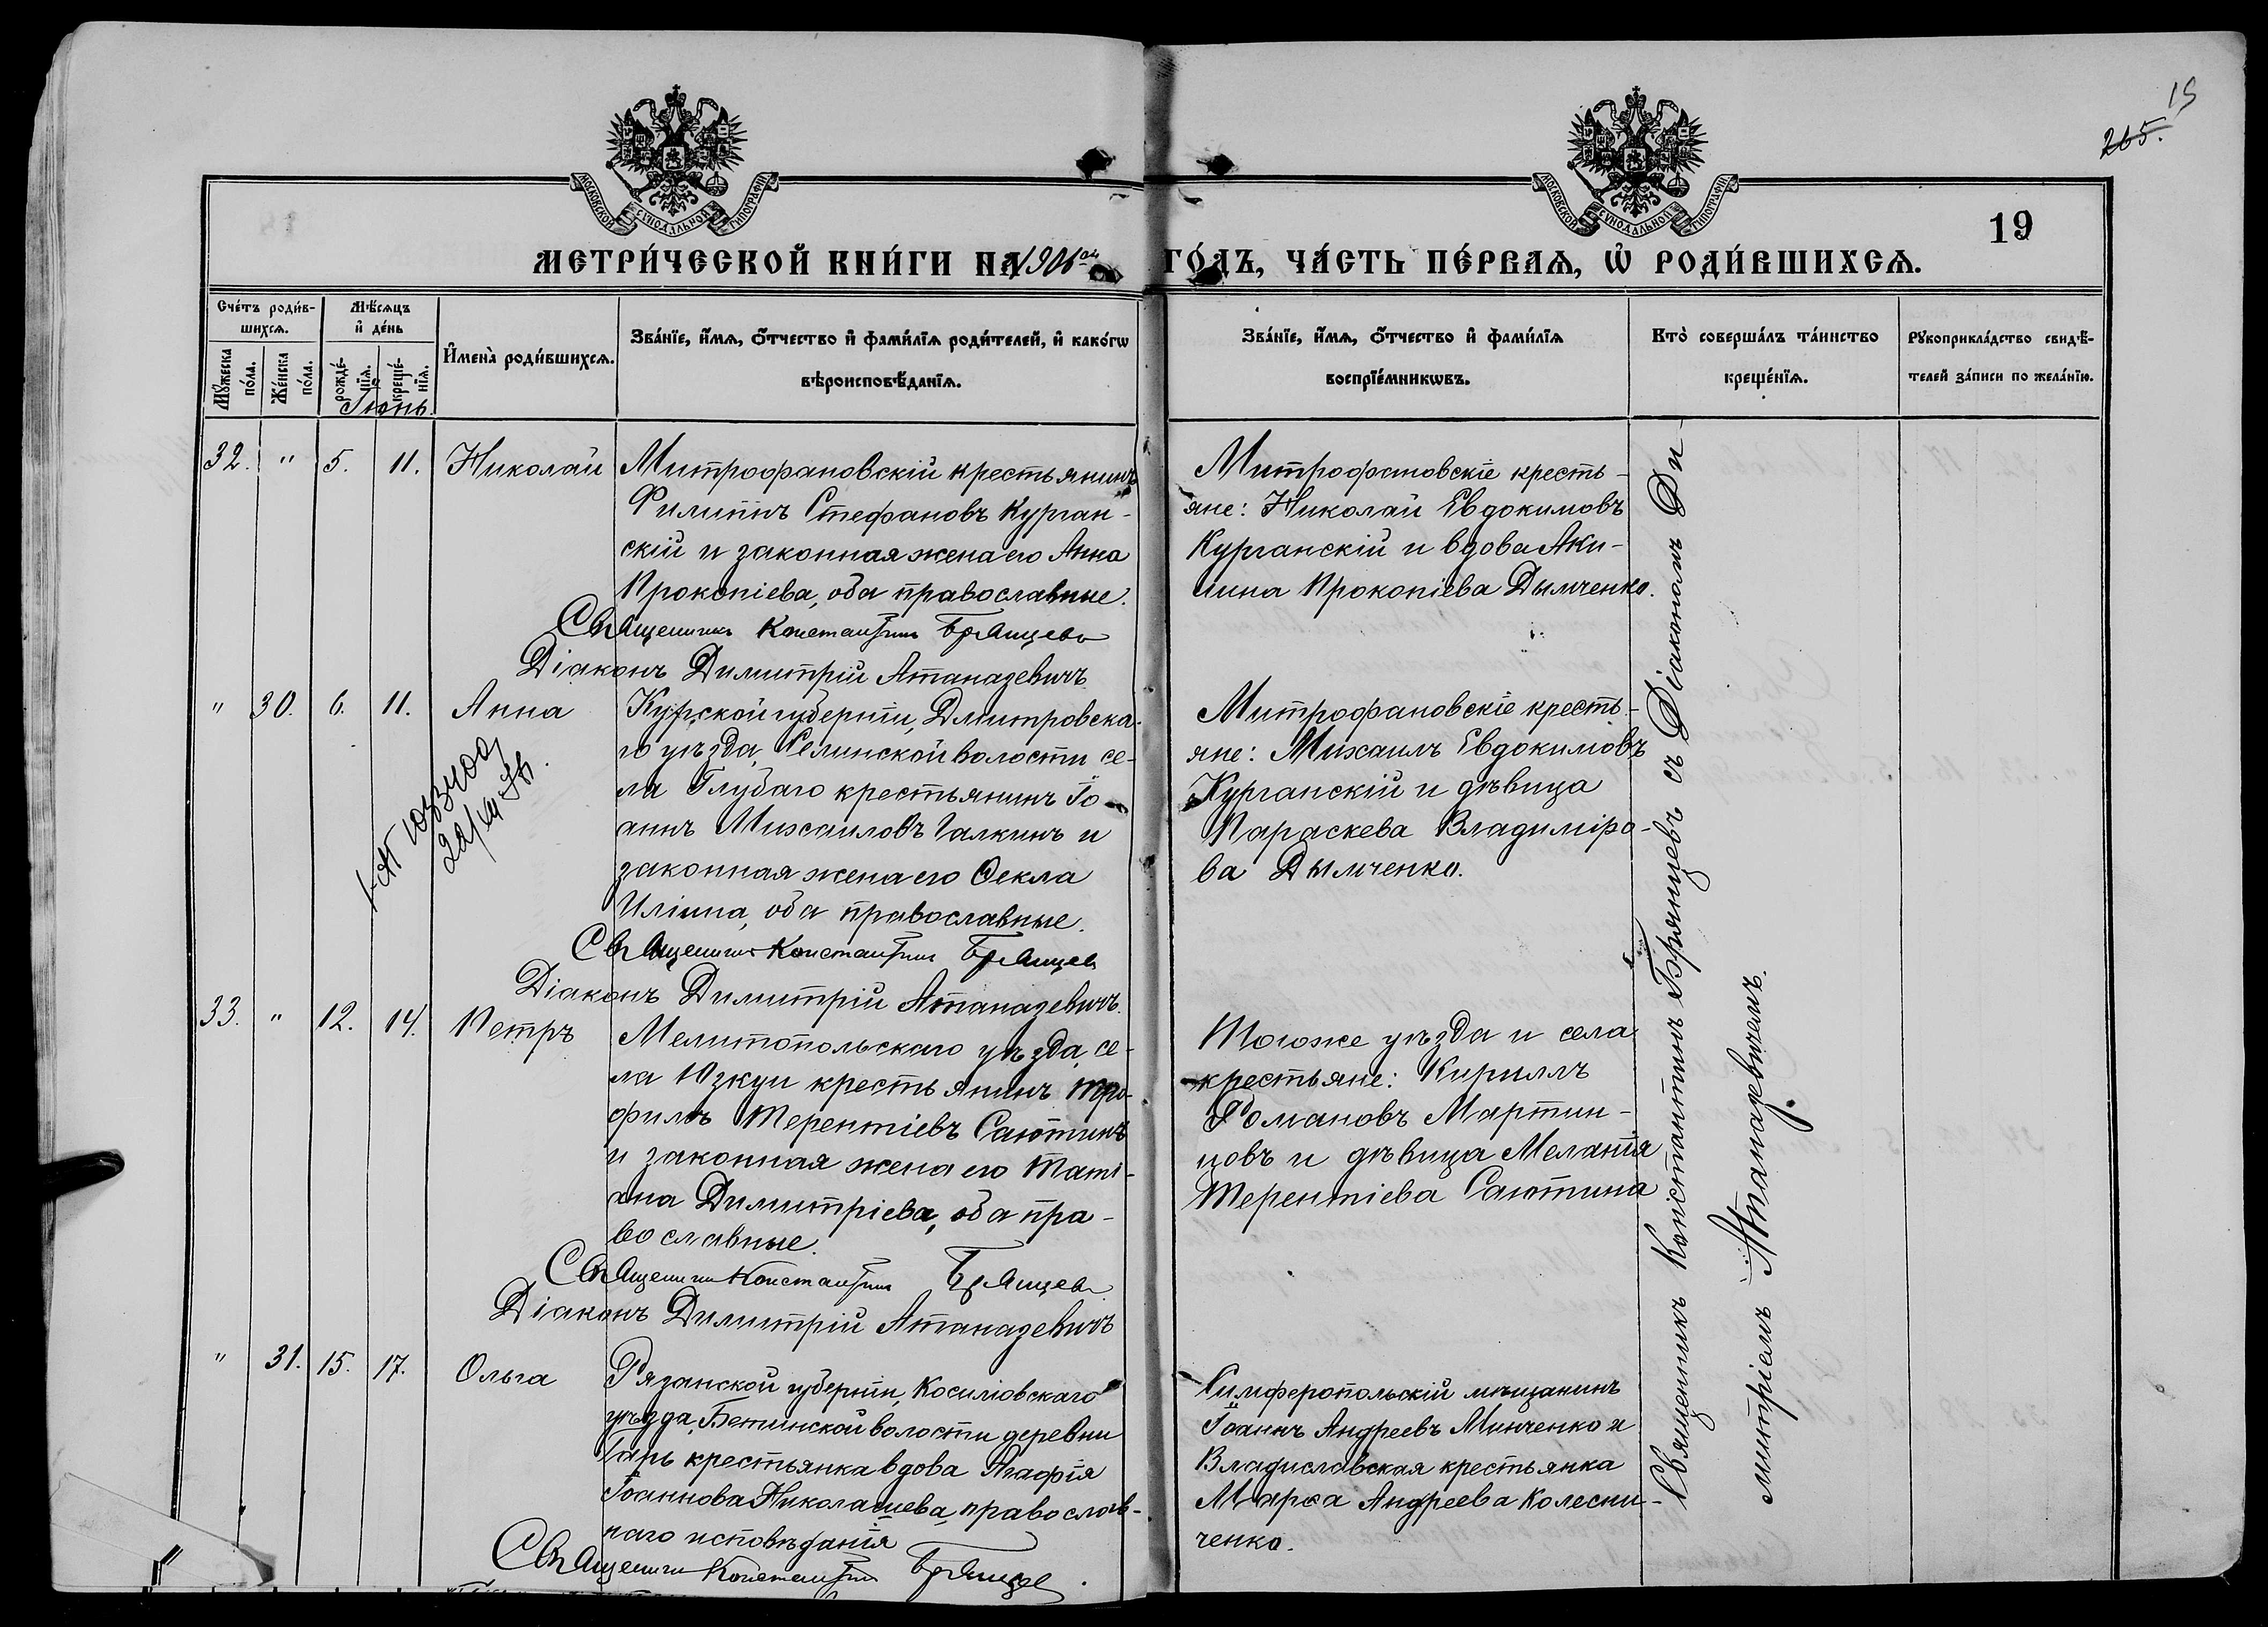 19
265.
МОСКОВСКОЙ СѴНОДАЛЬНОЙ ТИПОГРАФІИ
МОСКОВСКОЙ СѴНОДАЛЬНОЙ ТИПОГРАФІИ
19
МЕТРИ́ЧЕСКОЙ КНИ́ГИ НА 1906ой ГО́ДЪ, ЧА́СТЬ ПЕ́РВАѦ, Ѡ҆ РОДИ́ВШИХСѦ.
Сче́тъ роди́в-
шихсѧ.
Мꙋ́жеска по́ла.
Же́нска по́ла.
Мѣ́сѧцъ
и҆ де́нь
рожде́-нїѧ.
креще́-нїѧ.
И҆мена̀ роди́вшихсѧ.
Зва́нїе, и҆́мѧ, ѻ҆́тчество и҆ фами́лїѧ роди́телей, и҆ како́гѡ
вѣроисповѣ́данїѧ.
Зва́нїе, и҆́мѧ, ѻ҆́тчество и҆ фами́лїѧ
воспрїе́мникѡвъ.
Кто̀ соверша́лъ та́инство
креще́нїѧ.
Рꙋкоприкла́дство свидѣ́-
телей за́писи по жела́нїю.
Іюнь.
32. " 5. 11. Николай Митрофановскій крестьянинъ
Филиппъ Стефановъ Курган-
скій и законная жена его Анна
Прокопіева, оба православные.
Священникъ Константинъ Брянцевъ
Діаконъ Димитрій Атаназевичъ
Митрофановскіе кресть-
яне: Николай Евдокимовъ
Курганскій и вдова Аки-
лина Прокопіева Дымченко.
" 30. 6. 11. Анна Курской губерніи, Дмитровска-
го уѣзда, Селинской волости се-
ла Глубаго крестьянинъ Іо-
аннъ Михаиловъ Галкинъ и
законная жена его Ѳекла
Иліина, оба православные.
Священникъ Константинъ Брянцевъ
Діаконъ Димитрій Атаназевичъ.
Митрофановскіе кресть-
яне: Михаилъ Евдокимовъ
Курганскій и дѣвица
Параскева Владиміро-
ва Дымченко.
33. " 12. 14. Петръ Мелитопольскаго уѣзда, се-
ла Юзкуи крестьянинъ Тро-
филъ Терентіевъ Саютинъ
и законная жена его Таті-
ана Димитріева, оба пра-
вославные.
Священникъ Константинъ Брянцевъ
Діаконъ Димитрій Атаназевичъ
Тогоже уѣзда и села
крестьяне: Кириллъ
Романовъ Мартин-
цовъ и дѣвица Меланія
Терентіева Саютина
" 31. 15. 17. Ольга Рязанской губерніи, Косимовскаго
уѣзда, Бетинской волости деревни
Гарь крестьянка вдова Агафія
Іоаннова Николашева, православ-
наго исповѣданія
Священникъ Константинъ Брянцевъ
Симферопольскій мѣщанинъ
Іоаннъ Андреевъ Минченко и
Владиславская крестьянка
Марѳа Андреева Колесни-
ченко.
Священникъ Константинъ Брянцевъ съ Діакономъ Ди-
митріемъ Атаназевичемъ.